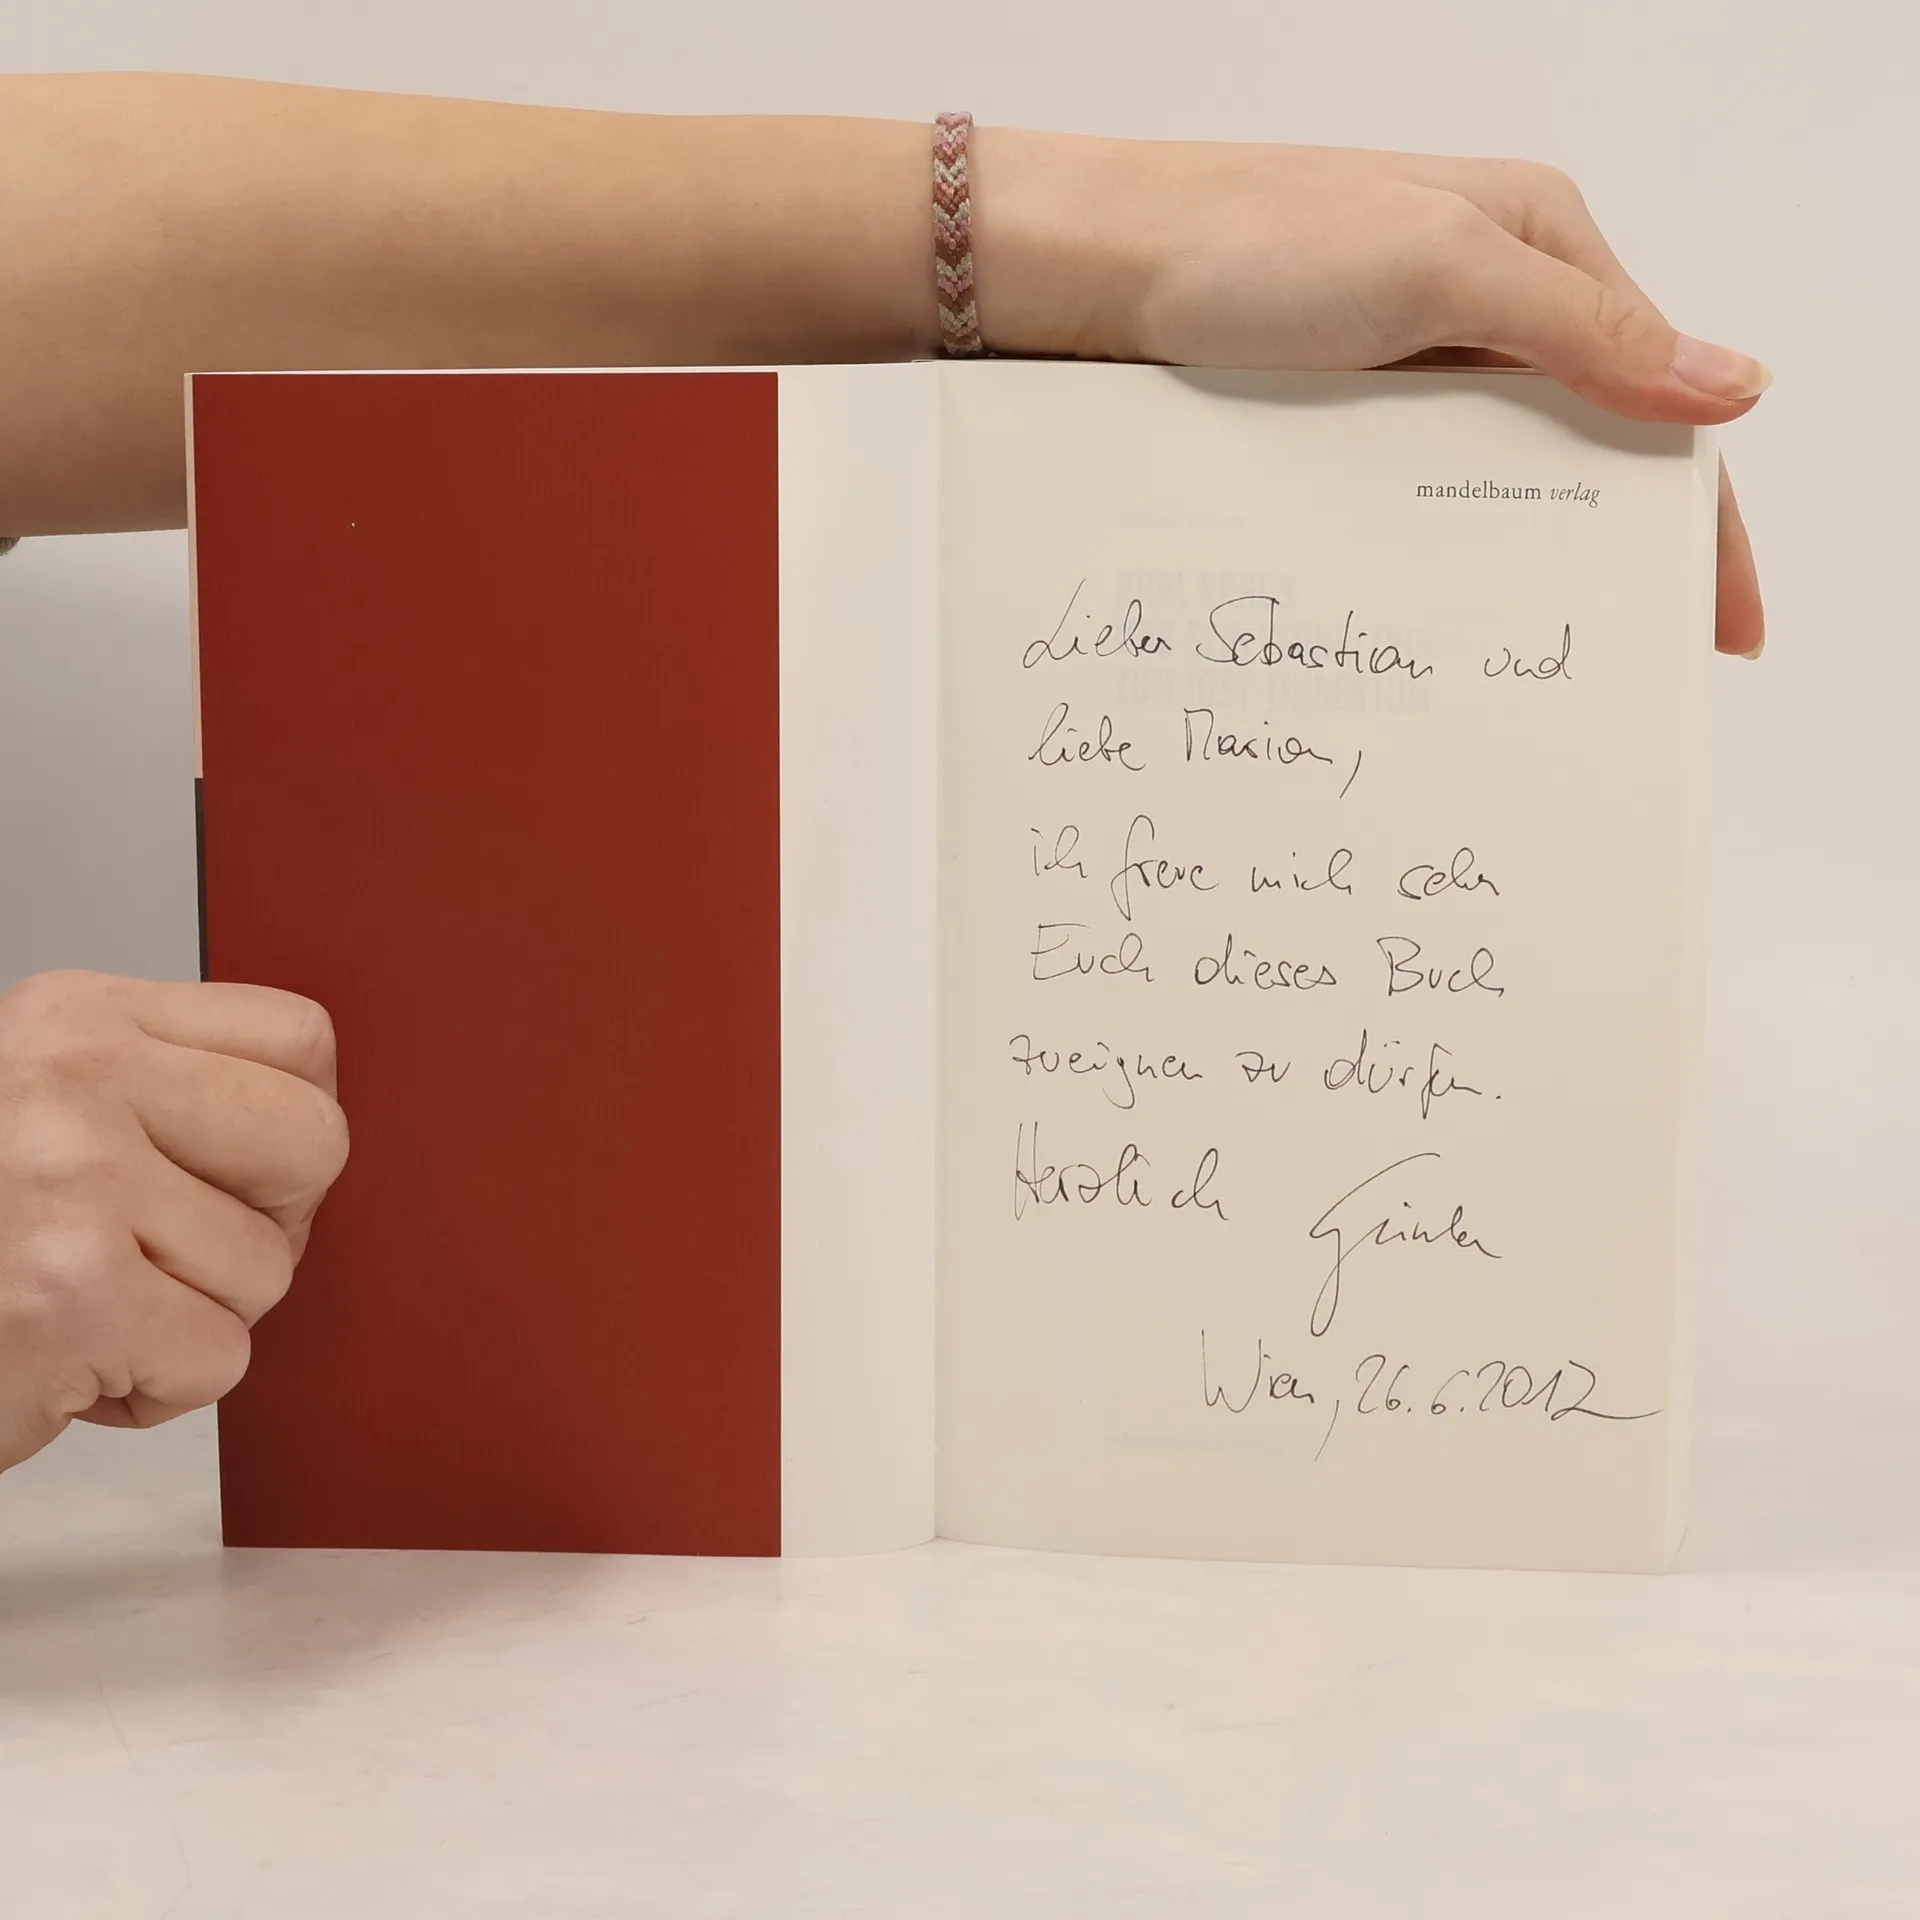 mandelbaum verlag
Lieber Sebastian und
liebe Marion,
ich freue mich sehr
Euch dieses Buch
zueignen zu dürfen.
Herzlich Günter
Wien, 26.6.2012